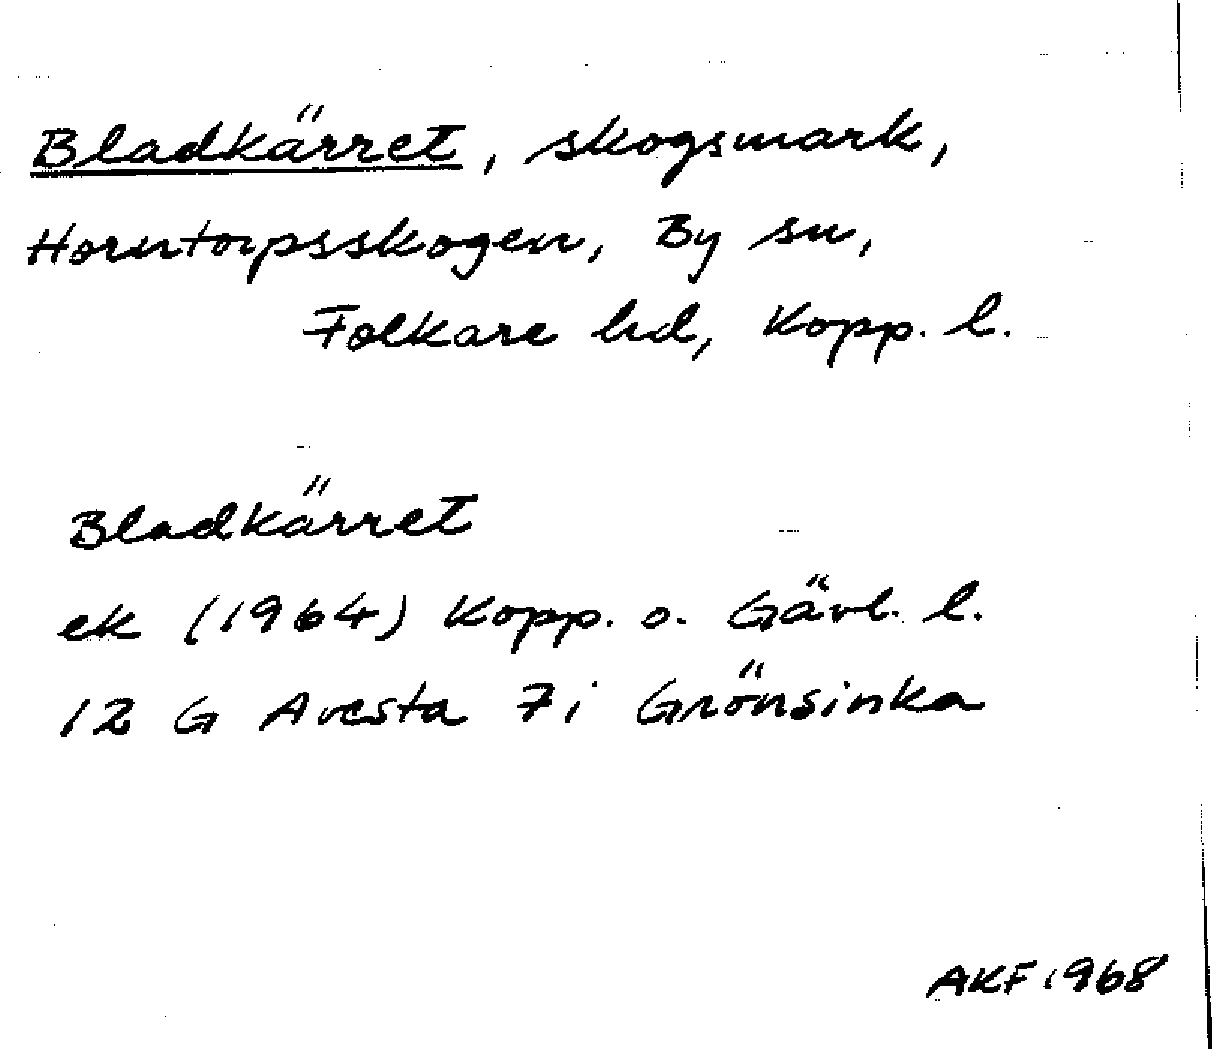 Bladkärret, skogsmark,
Horntorpsskogen, By sn,
Folkare hd, Kopp. l.
Bladkärret
ek (1964) Kopp. o. Gävl. l.
12 G Avesta 7i Grönsinka
AKF 1968